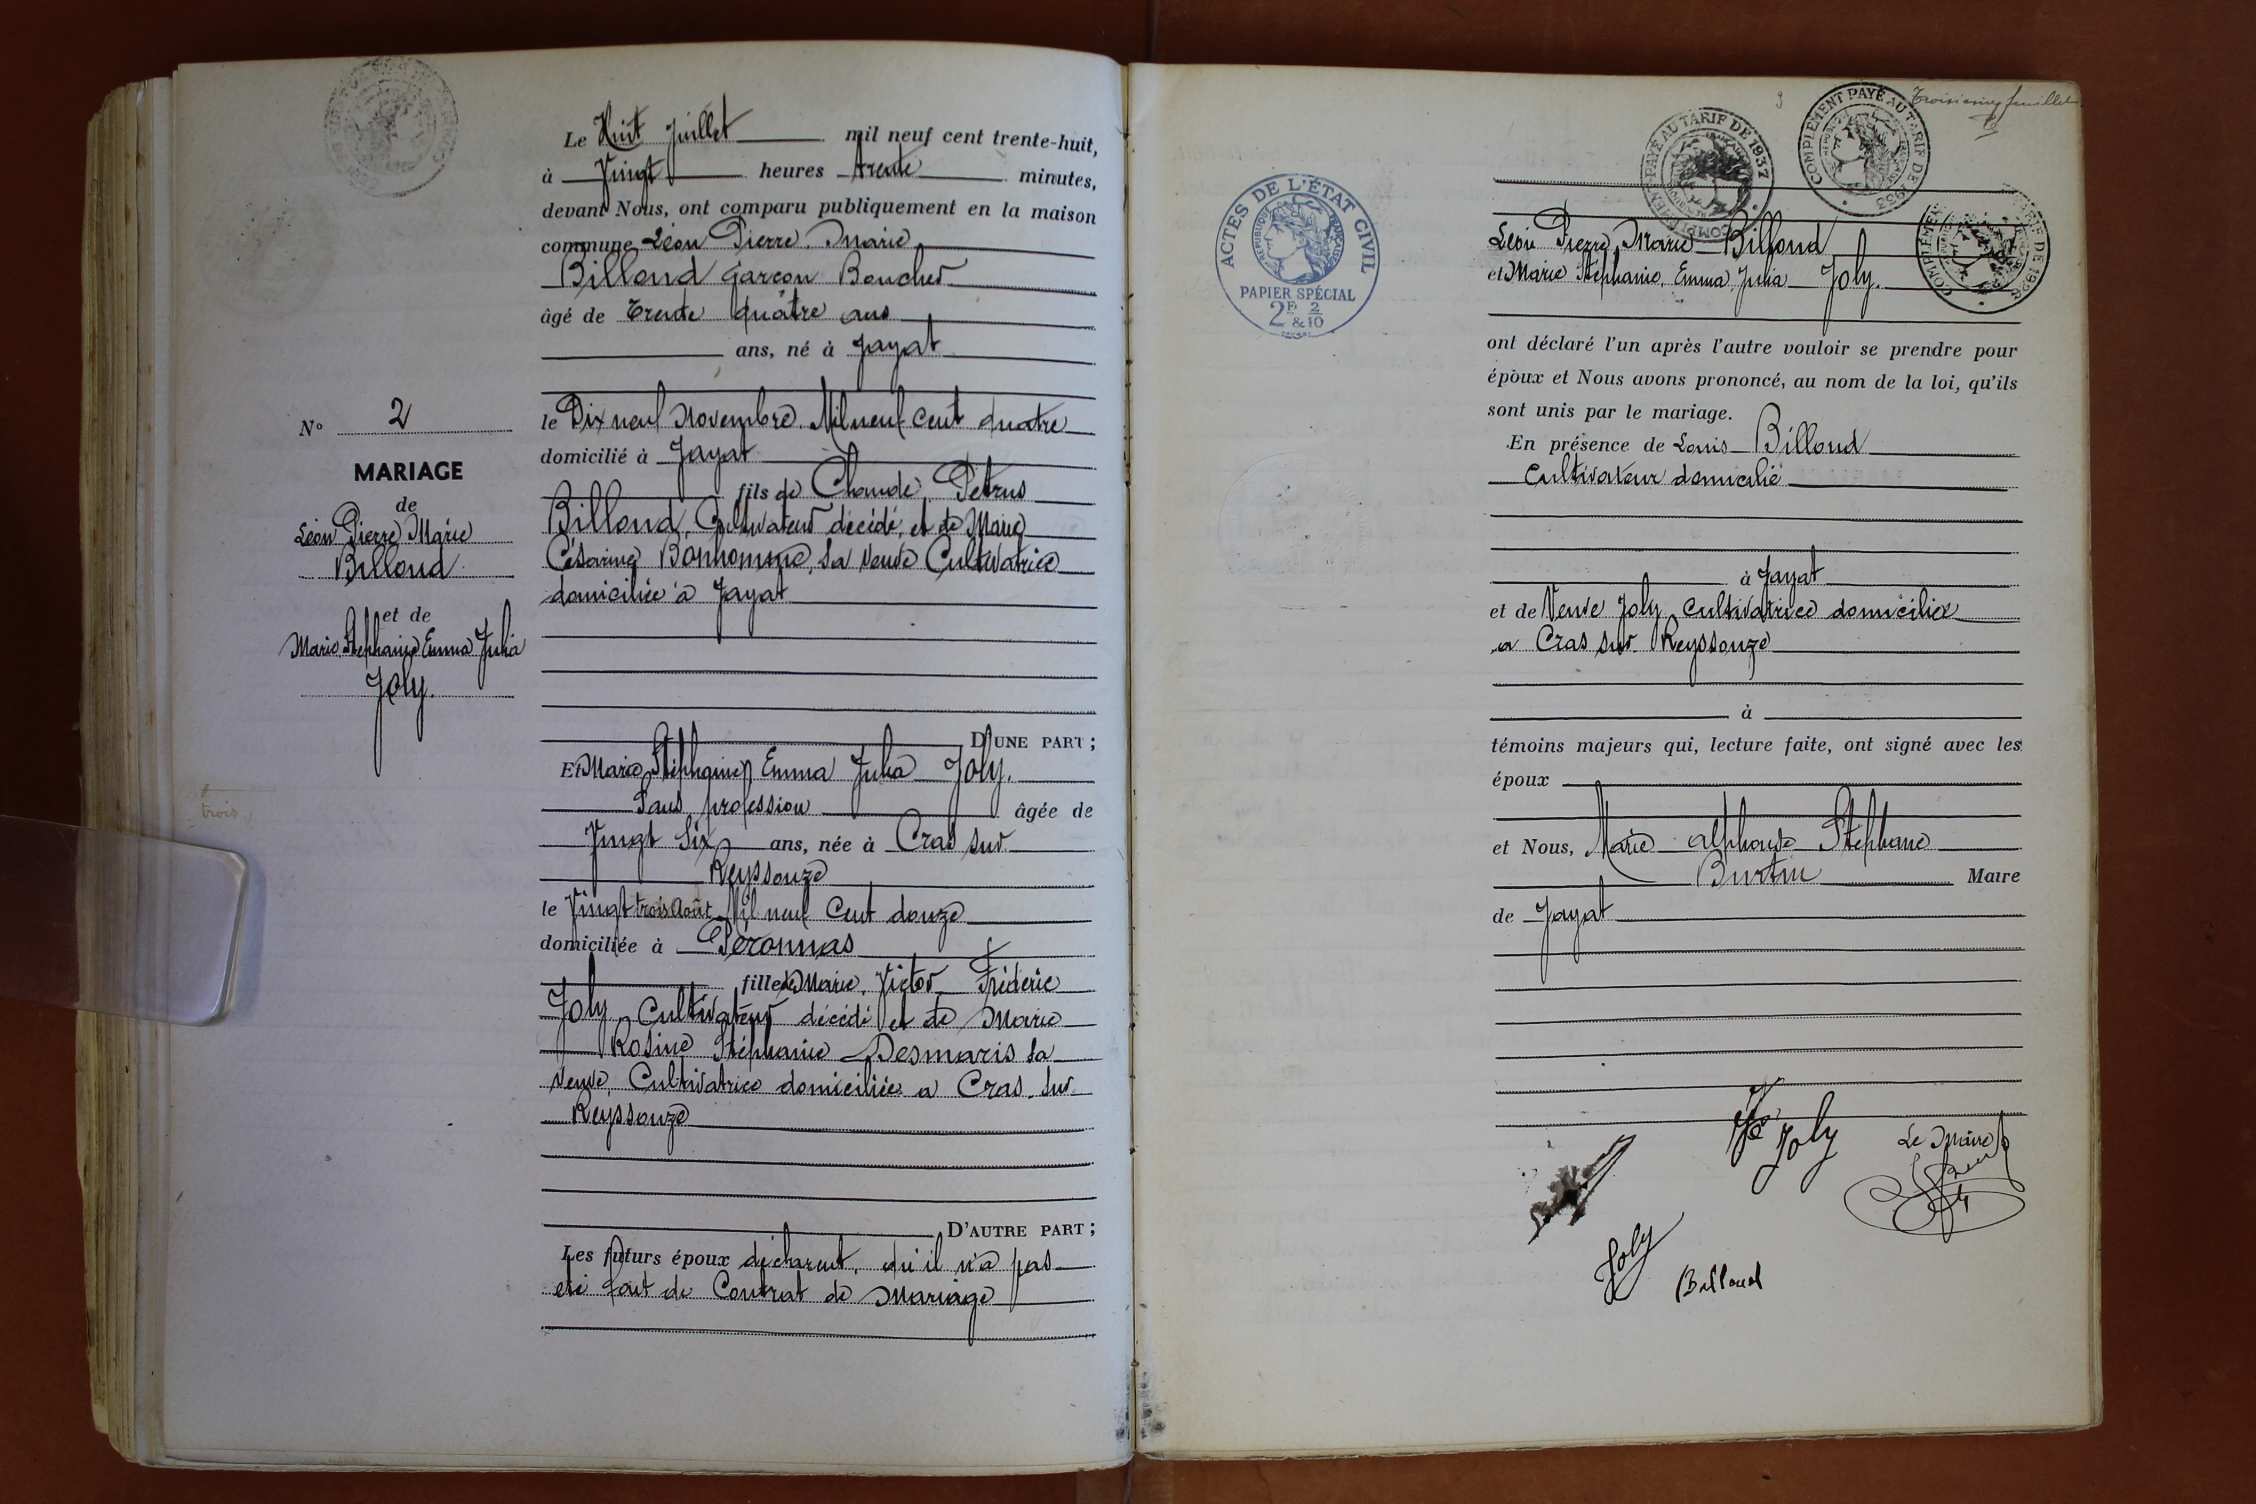 Le Huit Juillet mil neuf cent trente-huit,
à Vingt heures trente minutes,
devant Nous, ont comparu publiquement en la maison
commune Léon Pierre Marie
Billoud garçon Boucher
âgé de Trente quatre ans
ans, né à Jayat
le Dix neuf Novembre Mil neuf Cent quatre
domicilié à Jayat
fils de Claude Petrus
Billoud, Cultivateur décédé, et de Marie
Césarine Bonhomme, sa veuve Cultivatrice
domiciliée à Jayat
D'UNE PART ;
Et Marie Stéphanie Emma Julia Joly.
Sans profession âgée de
Vingt Six ans, née à Cras sur
Reyssouze
le Vingt trois Août Mil neuf Cent douze
domiciliée à Péronnas
fille de Marie Victor Fréderic
Joly Cultivateur décédé et de Marie
Rosine Stéphanie Desmaris sa
veuve, Cultivatrice domiciliée a Cras sur
Reyssouze
D'AUTRE PART ;
Les futurs époux déclarent, qu'il n'a pas
été fait de Contrat de Mariage
N° 2
MARIAGE
de
Léon Pierre Marie
Billoud
et de
Marie Stephanie Emma Julia
Joly.
trois
3
troisieme feuillet
COMPLÉMENT PAYÉ AU TARIF DE 1937
COMPLÉMENT PAYÉ AU TARIF DE 1933
ACTES DE L'ÉTAT CIVIL
RÉPUBLIQUE FRANÇAISE
PAPIER SPÉCIAL
2F & 2/10
Léon Pierre Marie Billoud
et Marie Stéphanie, Emma Julia Joly.
ont déclaré l'un après l'autre vouloir se prendre pour
époux et Nous avons prononcé, au nom de la loi, qu'ils
sont unis par le mariage.
En présence de Louis Billoud
Cultivateur domicilié
à Jayat
et de Veuve Joly Cultivatrice domiciliée
a Cras sur Reyssouze
à
témoins majeurs qui, lecture faite, ont signé avec les
époux
et Nous, Marie Alphonse Stéphane
Burtin Maire
de Jayat
Vve Joly
Le Maire
Joly
Billoud